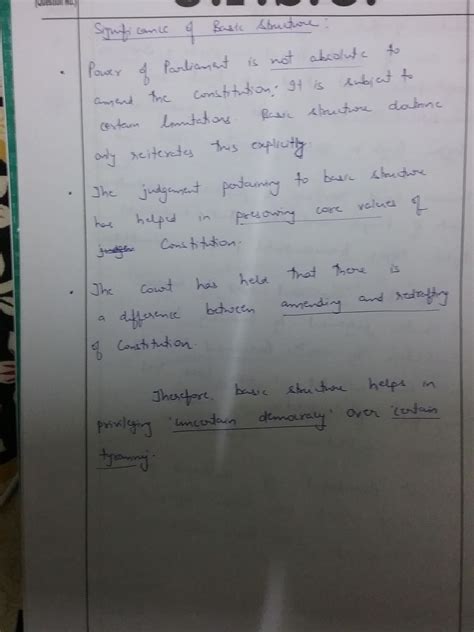 (Question No.)
Significance of Basic Structure :
• Power of Parliament is not absolute to
amend the Constitution. It is subject to
certain limitations. Basic structure doctrine
only reiterates this explicitly.
• The judgement pertaining to basic structure
has helped in preserving core values of
Constitution.
• The Court has held that there is
a difference between amending and redrafting
of Constitution.
Therefore, basic structure helps in
privileging 'uncertain democracy' over 'certain
tyranny'.